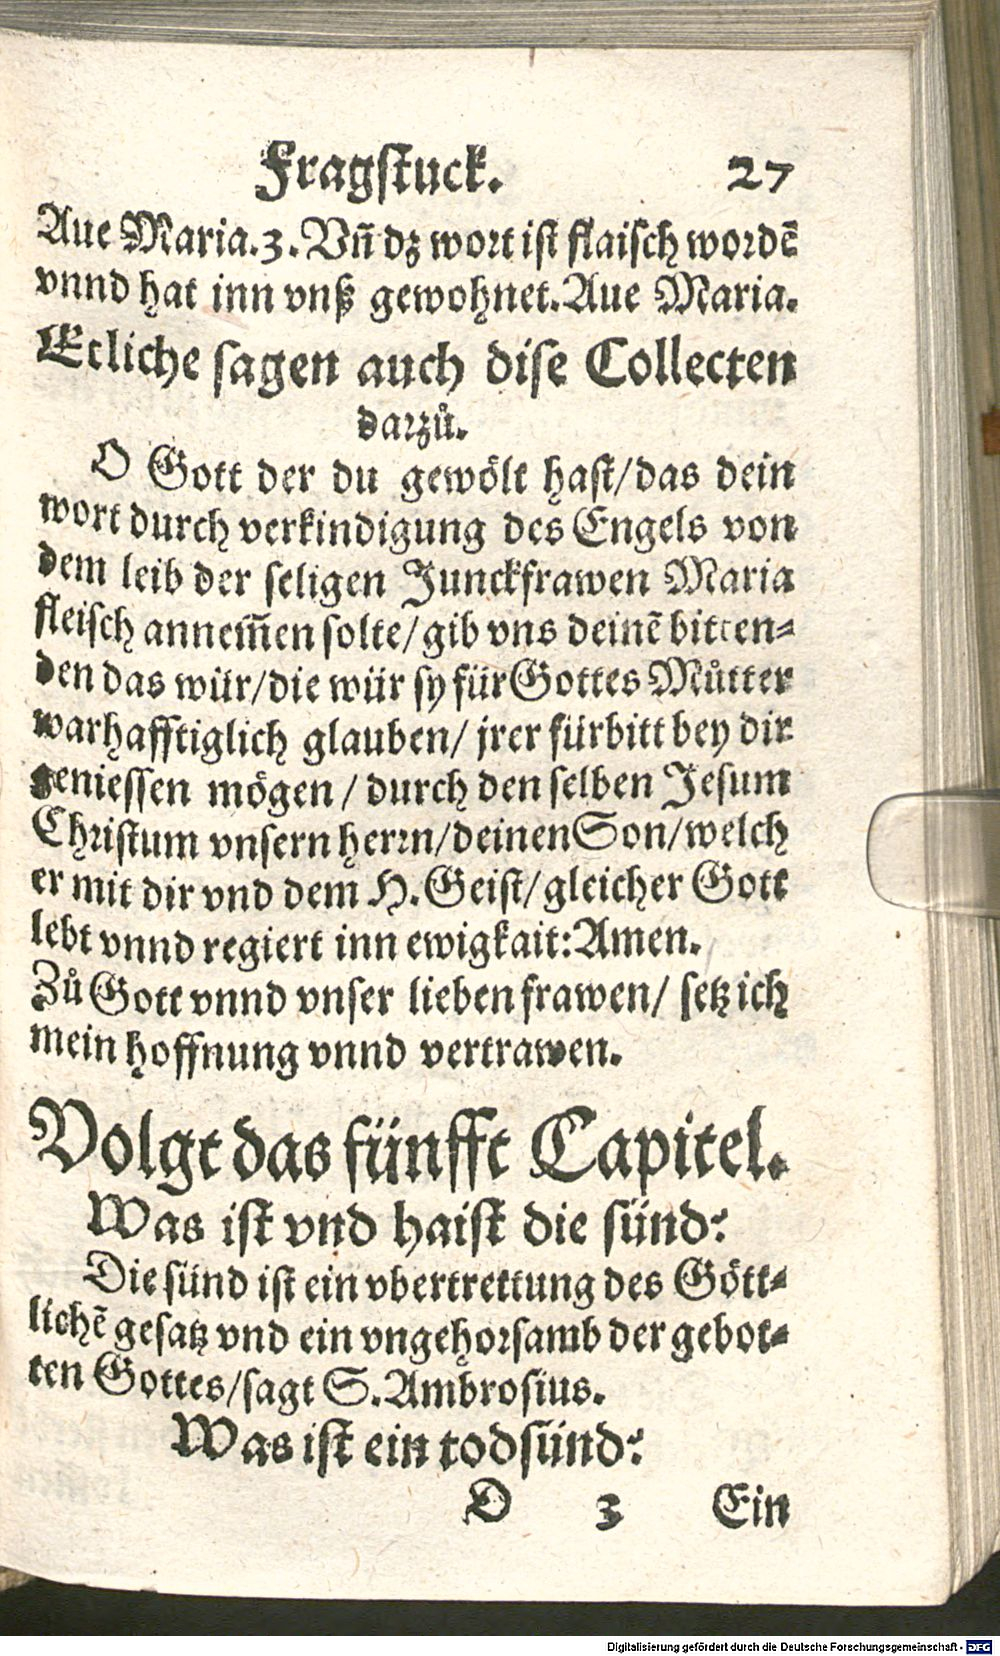 Fragstuck. 27
Aue Maria.3. Vñ dz wort ist flaisch wordē
vnnd hat inn vnß gewohnet. Aue Maria.
Etliche sagen auch dise Collecten
darzů.
O Gott der du gewölt hast/das dein
wort durch verkindigung des Engels von
dem leib der seligen Junckfrawen Maria
fleisch annem̃en solte/gib vns deinē bitten⸗
den das wür/die wür sy für Gottes Můtter
warhafftiglich glauben/ jrer fürbitt bey dir
geniessen mögen/durch den selben Jesum
Christum vnsern herrn/deinen Son/welch
er mit dir vnd dem H. Geist/gleicher Gott
lebt vnnd regiert inn ewigkait: Amen.
Zů Gott vnnd vnser lieben frawen/ setz ich
mein hoffnung vnnd vertrawen.
Volgt das fünfft Capitel.
Was ist vnd haist die sünd?
Die sünd ist ein vbertrettung des Gött⸗
lichē gesatz vnd ein vngehorsamb der gebot⸗
ten Gottes/sagt S. Ambrosius.
Was ist ein todsünd?
D 3 Ein
Digitalisierung gefördert durch die Deutsche Forschungsgemeinschaft - DFG